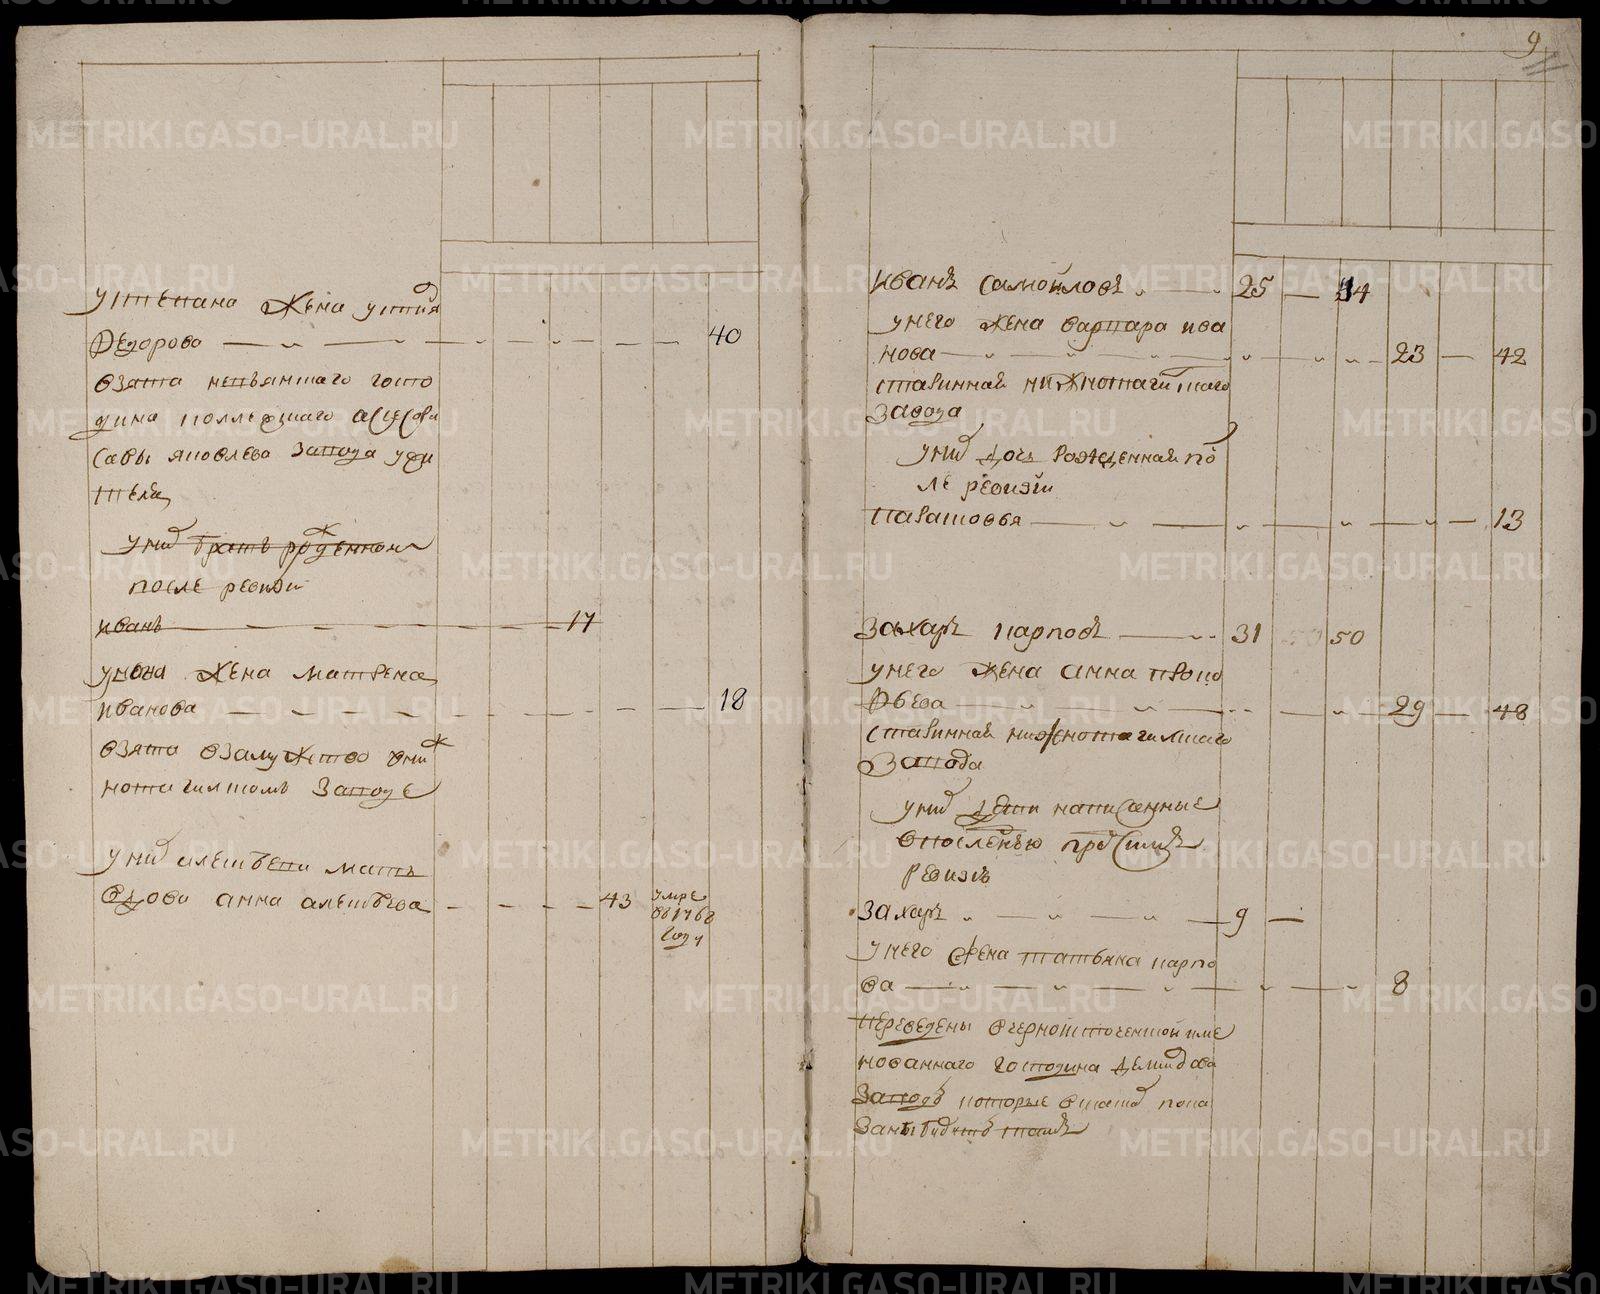 у степана жена устиня
Федорова — — — 40
взята невьянскаго госпо
дина коллежскаго асцесора
савы яковлева завода
уних братъ рожденной
после ревизи
иванъ — — — 17
у ивана жена матрена
Иванова — — — 18
взята взамужство вниж
нотагилскомъ заводе
уних алексеева мать
вдова анна алексѣева — — — 43 умре
в 1768
году
9
Иванъ самойловъ — 25 — 34
унего жена варвара ива
нова — — — 23 — 42
старинная нижнотагилскаго
завода
уних дочь рожденная по
ле ревизiи
парасковья — — — 13
Захаръ карповъ — 31 50
унего жена анна проко
фьева — — — 29 — 48
старинная нижнотагилскаго
завода
уних дети написанные
впоследнею пред симъ
ревизъ
Захаръ — — — 9 —
унего жена татьяна карпо
ва — — — 8
переведены вчерноисточенской име
нованнаго господина демидова
заводъ которые втомъ пока
заны будутъ
METRIKI.GASO-URAL.RU